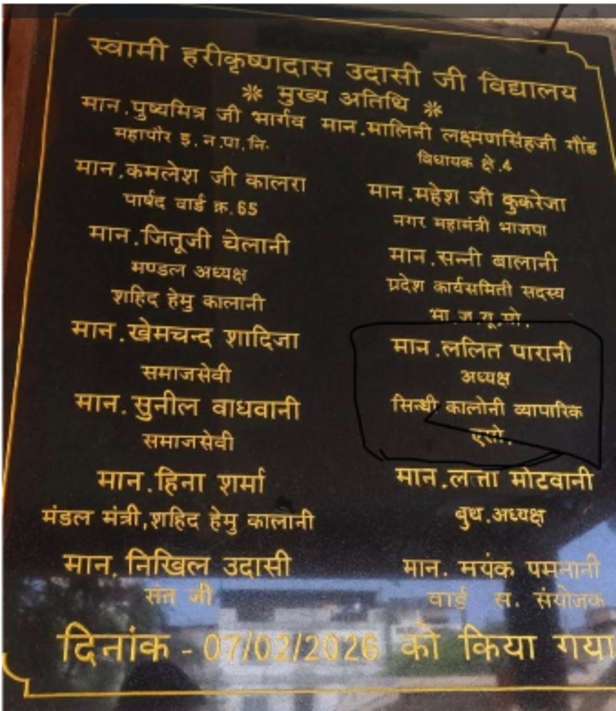 स्वामी हरीकृष्णदास उदासी जी विद्यालय
❋ मुख्य अतिथि ❋
मान.पुष्यमित्र जी भार्गव मान.मालिनी लक्ष्मणसिंहजी गौंड
महापौर इ.न.पा.नि. विधायक क्षे.4
मान.कमलेश जी कालरा मान.महेश जी कुकरेजा
पार्षद वार्ड क्र.65 नगर महामंत्री भाजपा
मान.जितूजी चेलानी मान.सन्नी बालानी
मण्डल अध्यक्ष प्रदेश कार्यसमिती सदस्य
शहिद हेमु कालानी भा.ज.यू.मो.
मान.खेमचन्द शादिजा मान.ललित पारानी
समाजसेवी अध्यक्ष
मान.सुनील वाधवानी सिन्धी कालोनी व्यापारिक
समाजसेवी एसो.
मान.हिना शर्मा मान.लत्ता मोटवानी
मंडल मंत्री,शहिद हेमु कालानी बुथ.अध्यक्ष
मान.निखिल उदासी मान. मयंक पमनानी
संत जी वार्ड स. संयोजक
दिनांक - 07/02/2026 को किया गया